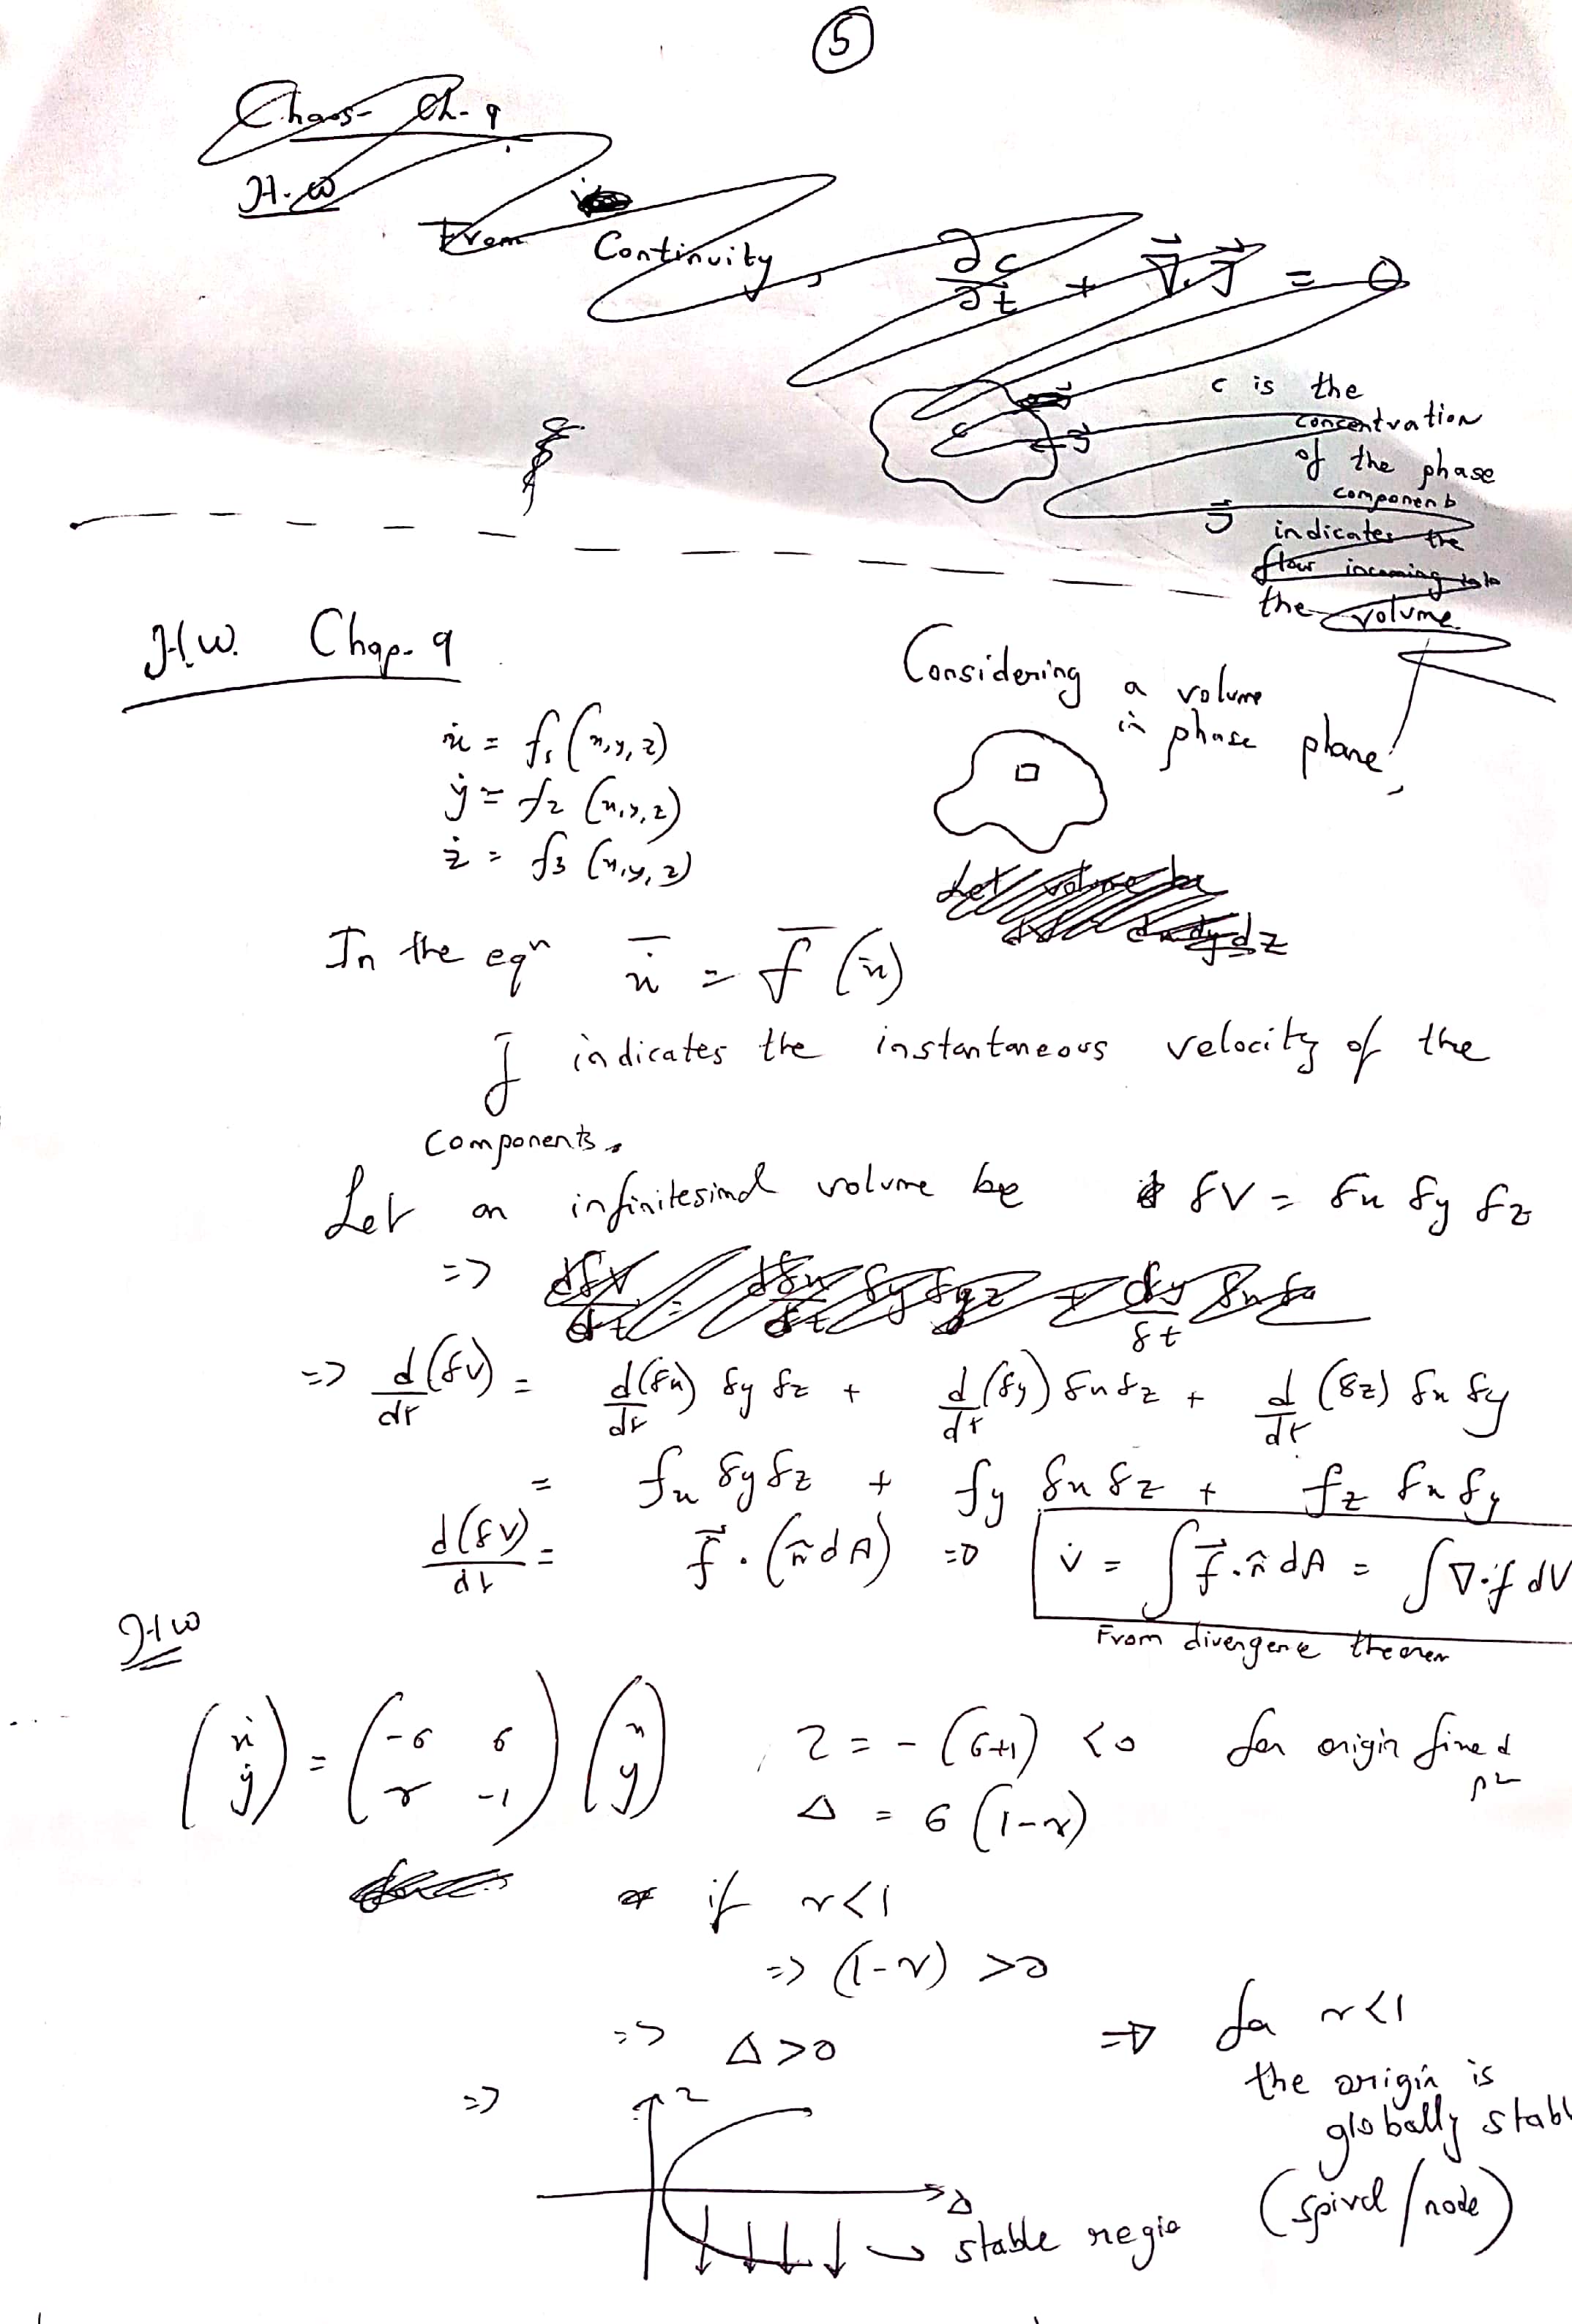 5
Chaos- Ch-9
H.W
From Continuity, ∂c/∂t + ∇⃗.J⃗ = 0
c is the
concentration
of the phase
component
J⃗ indicates the
flow incoming into
the volume
H.W. Chap-9
Considering a volume
in phase plane,
ẋ = f₁(x,y,z)
ẏ = f₂(x,y,z)
ż = f₃(x,y,z)
Let volume be
dxdydz
In the eqⁿ ẋ̄ = f̄(x̄)
f̄ indicates the instantaneous velocity of the
components.
Let an infinitesimal volume be δV = δx δy δz
=>
=> d/dt(δV) = d(δx)/dt δy δz + d/dt(δy) δx δz + d/dt(δz) δx δy
= fx δy δz + fy δx δz + fz δx δy
d(δV)/dt = f⃗.(n̂dA) => V̇ = ∫f⃗.n̂dA = ∫∇.f dV
From divergence theorem
HW
(ẋ ẏ) = (-σ σ r -1)(x y) , τ = -(σ+1) <0 for origin fixed pt
Δ = σ(1-r)
if r<1
=> (1-r) >0
=> Δ>0 => for r<1
the origin is
globally stabl
(spiral/node)
=> τ
Δ
stable regio